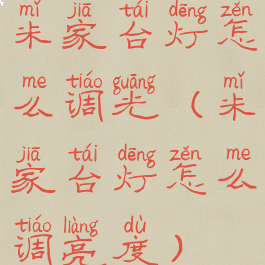 mǐ jiā tái dēng zěn
米家台灯怎
me tiáo guāng mǐ
么调光（米
jiā tái dēng zěn me
家台灯怎么
tiáo liàng dù
调亮度）